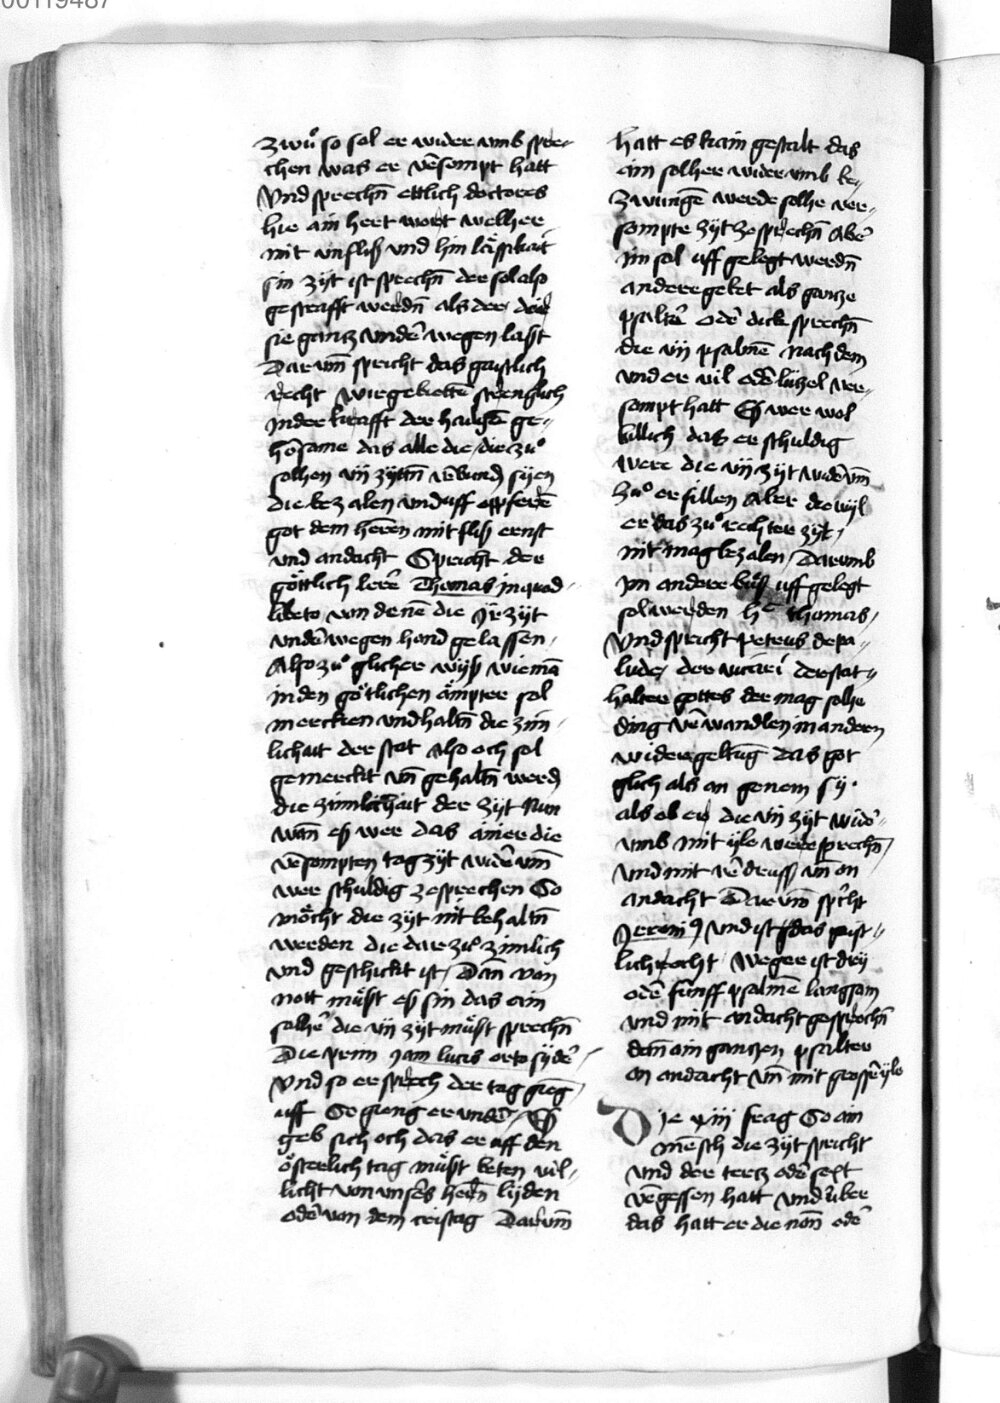 00119487
zwuͦ so sol er wider umb spre-
chen was er v̄sompt hatt
Vnd sprechn̄ ettlich doctores
hie ain hert wort welher
mit unfliß und hin läſſikait
sin zÿt ist sprechn̄ der sol also
gestrafft werdn̄ als der der
sie ganz undē wegen laßt
Darum̄ spricht das gaistlich
recht wir gebiettē strenglich
in der krafft der hailigē ge-
horsame das alle die / die zuͦ
solhen vij zÿttn̄ v̄bund̄ sÿen
die bezalen und uff opfferē
got dem heren mit fliß ernst
und andacht Spricht der
göttlich lerē Thomas in quod-
libeto von denē die Ir zÿt
undē wegen hond gelassen /
Also zuͦ glicher wÿß wie mā
in den göttlichen ämpter sol
mercken und haltn̄ die zim-
lichait der stat also och sol
gemerckt un̄ gehaltn̄ werd̄
die zimlichait der zÿt Nun
wan̄ eß wer das ainer die
v̄sompten tag zÿt widē um̄
wer schuldig ze sprechen So
möcht die zÿt nit behaltn̄
werden die dar zuͦ zimlich
und geschickt ist / Dan̄ von
nott müßt eß sin das ain
solhē die vij zÿt müßt sprechn̄
Die prim jam lucis orto sÿdē /
Vnd so er sprech der tag gieḡ
uff So gieng er undē / Eß
geb sich och das er uff den
österlich tag müßt beten vil-
licht von unsers hern̄ lÿden
odē von dem cristag Darum̄
hatt es kain gestalt das
ain solher wider umb be-
zwungē werde solhe ver-
sompte zÿt ze sprechn̄ Abē
im sol uff gelegt werdn̄
andere gebet als ganze
psaltē odē dick sprechn̄
die vij psalmē nach dem
und er vil odē lützel ver-
sompt hatt Eß wer wol
billich das er schuldig
were die vij zÿt widē um̄
zuͦ erfillen Aber die wÿl
er das zuͦ rechter zÿt /
nit mag bezalen / Darumb
im andere buͦß uff gelegt
sol werden hc thomas /
Vnd spricht Petrus de pa-
lude / der vicari der stat-
halter gottes der mag solhe
ding v̄wandlen in andern
widergeltuḡ das got
glich als an genem sÿ ·
als ob er die vij zÿt widē-
umb mit ÿle were sprechn̄ /
und mit v̄druß un̄ on
andacht Darum̄ spricht
Jeronimꝰ und ist das pist-
lich recht / Weger ist drÿ
odē funff psalmē langsam
und mit andacht gesprochn̄
dan̄ ain ganzen psalter
on andacht un̄ mit grossē ÿle
Die xiiij frag So ain
mēsch die zÿt spricht
und der tercz odē sext
v̄gessen hatt und über
das hatt er die non̄ odē